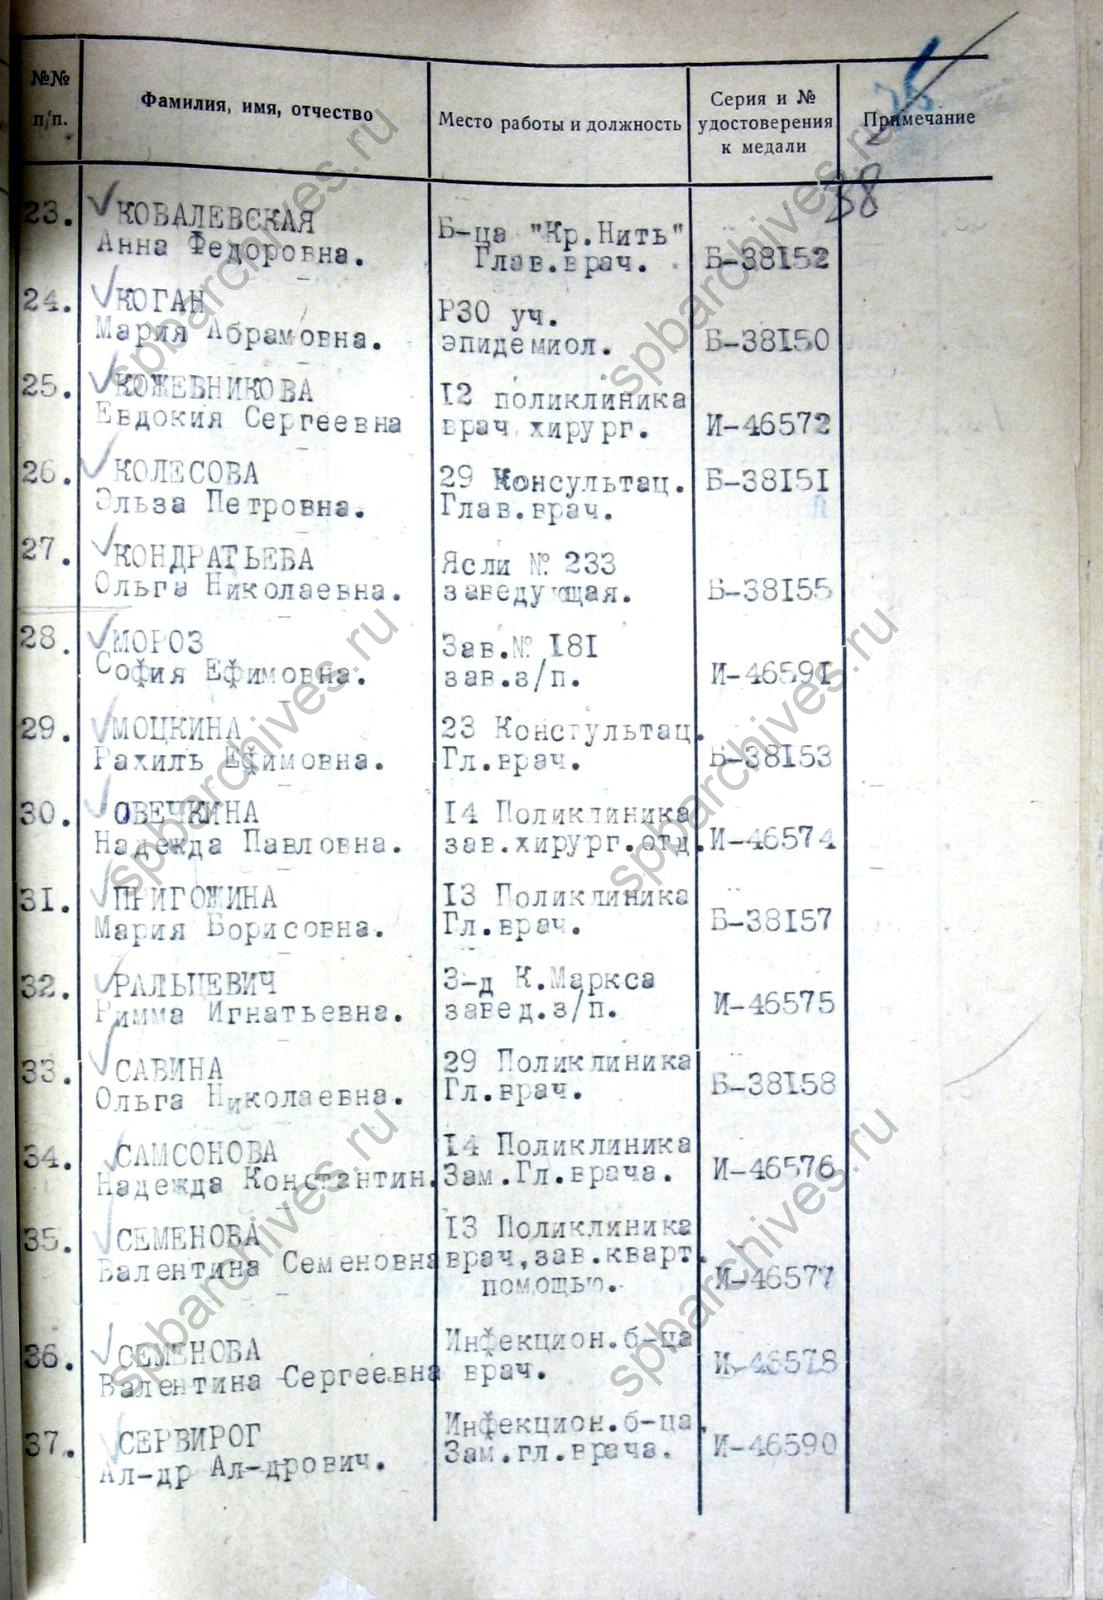 №№ п/п.
Фамилия, имя, отчество
Место работы и должность
Серия и № удостоверения к медали
Примечание
38
23. КОВАЛЕВСКАЯ
Анна Федоровна.
Б-ца "Кр.Нить"
Глав.врач.
Б-38152
24. КОГАН
Мария Абрамовна.
РЗО уч.
эпидемиол.
Б-38150
25. КОЖЕВНИКОВА
Евдокия Сергеевна
12 поликлиника
врач хирург.
И-46572
26. КОЛЕСОВА
Эльза Петровна.
29 Консультац.
Глав.врач.
Б-38151
27. КОНДРАТЬЕВА
Ольга Николаевна.
Ясли № 233
заведующая.
Б-38155
28. МОРОЗ
София Ефимовна.
Зав.№ 181
зав.з/п.
И-46591
29. МОЦКИНА
Рахиль Ефимовна.
23 Констультац.
Гл.врач.
Б-38153
30. ОВЕЧКИНА
Надежда Павловна.
14 Поликлиника
зав.хирург.отд.
И-46574
31. ПРИГОЖИНА
Мария Борисовна.
13 Поликлиника
Гл.врач.
Б-38157
32. РАЛЬЦЕВИЧ
Римма Игнатьевна.
З-д К.Маркса
завед.з/п.
И-46575
33. САВИНА
Ольга Николаевна.
29 Поликлиника
Гл.врач.
Б-38158
34. САМСОНОВА
Надежда Константин.
14 Поликлиника
Зам.Гл.врача.
И-46576
35. СЕМЕНОВА
Валентина Семеновна
13 Поликлиника
врач,зав.кварт.
помощью.
И-46577
36. СЕМЕНОВА
Валентина Сергеевна
Инфекцион.б-ца
врач.
И-46578
37. СЕРВИРОГ
Ал-др Ал-дрович.
Инфекцион.б-ца.
Зам.гл.врача.
И-46590
spbarchives.ru
spbarchives.ru
spbarchives.ru
spbarchives.ru
spbarchives.ru
spbarchives.ru